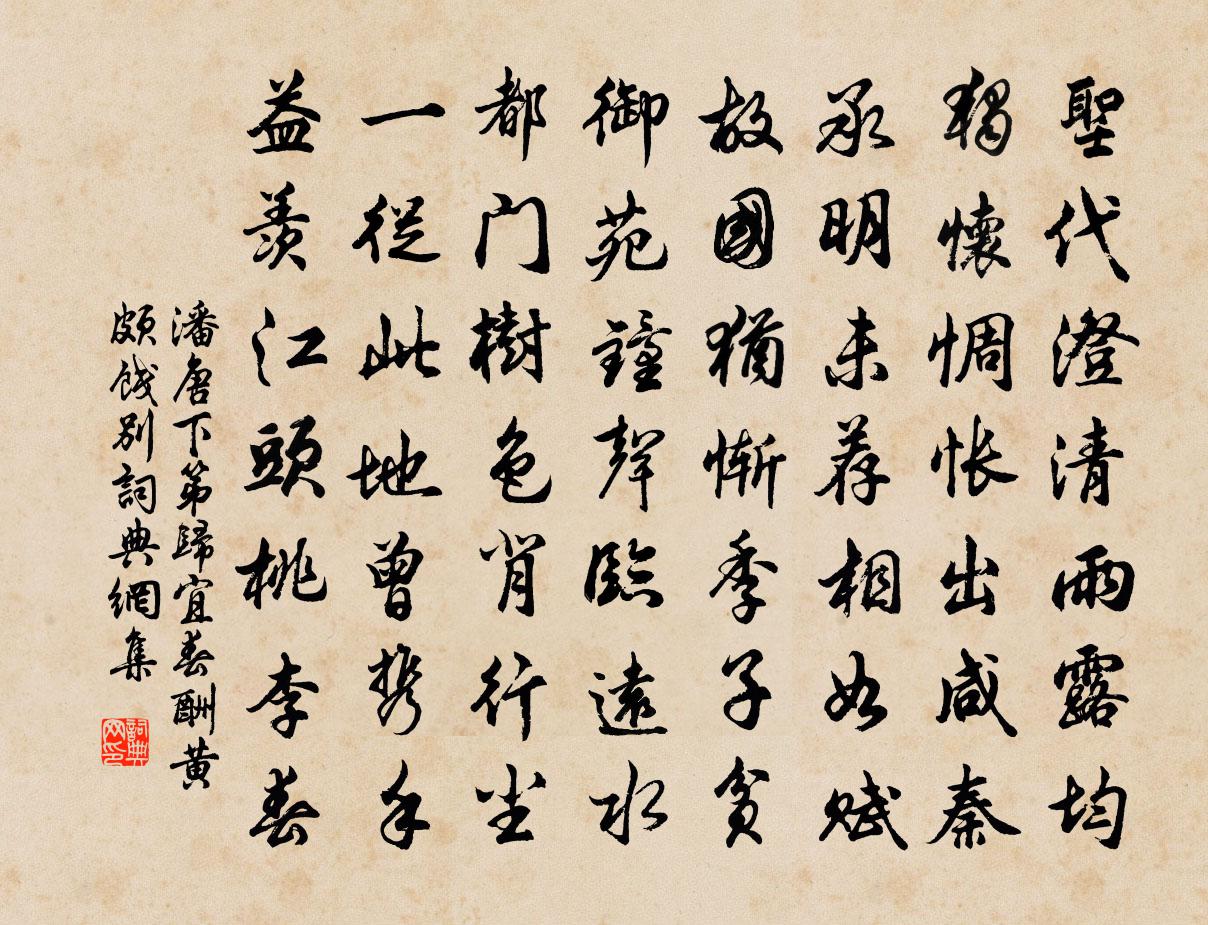 聖代澄清雨露均
獨懷惆悵出咸秦
承明未荐相如賦
故國猶慚季子貧
御苑鐘聲臨遠水
都门樹色背行尘
一從此地曾携手
益羨江頭桃李春
潘唐下第歸宜春酬黄
頗餞别詞典網集
詞典网印